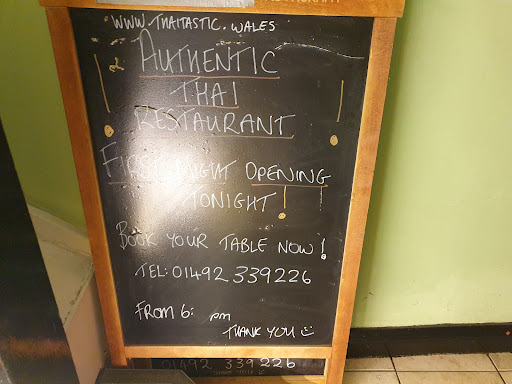 WWW.THAITASTIC.WALES
AUTHENTIC
THAI
RESTAURANT
FIRST NIGHT OPENING
TONIGHT !
BOOK YOUR TABLE NOW!
TEL: 01492 339226
FROM 6: pm
THANK YOU
01492 339 226